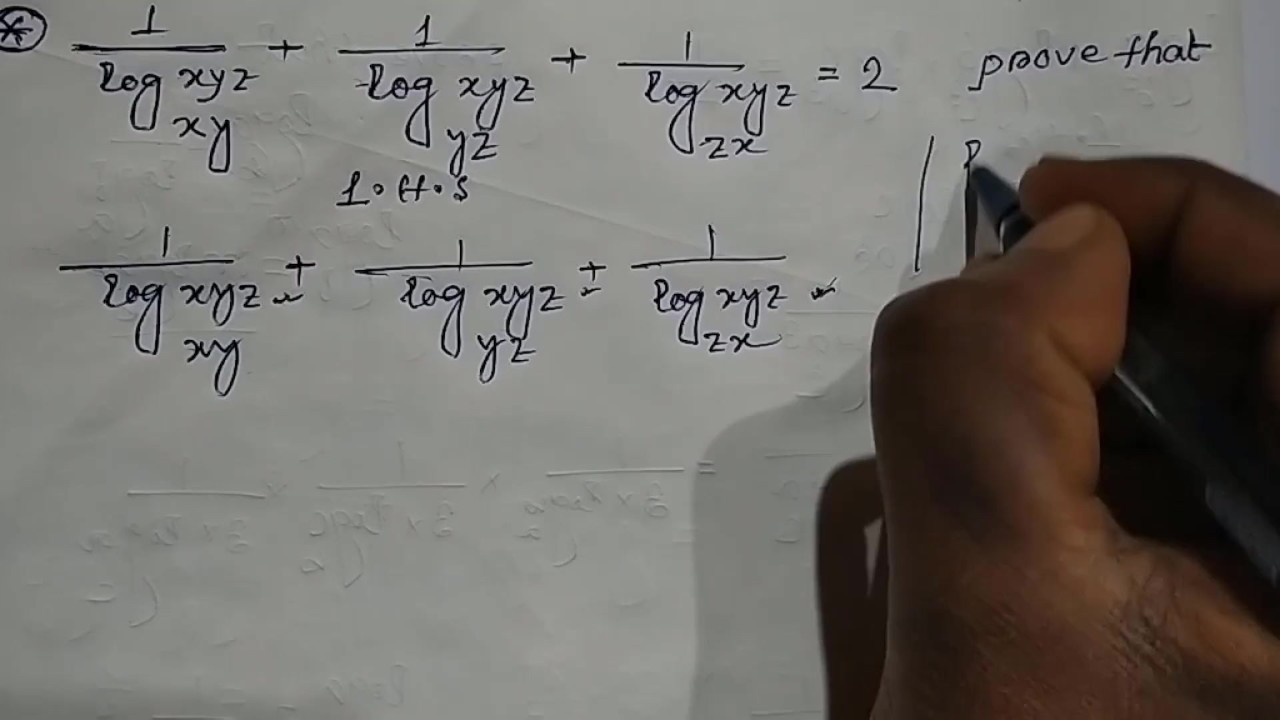 * 1/log_xy xyz + 1/log_yz xyz + 1/log_zx xyz = 2 prove that
L.H.S
1/log_xy xyz + 1/log_yz xyz + 1/log_zx xyz